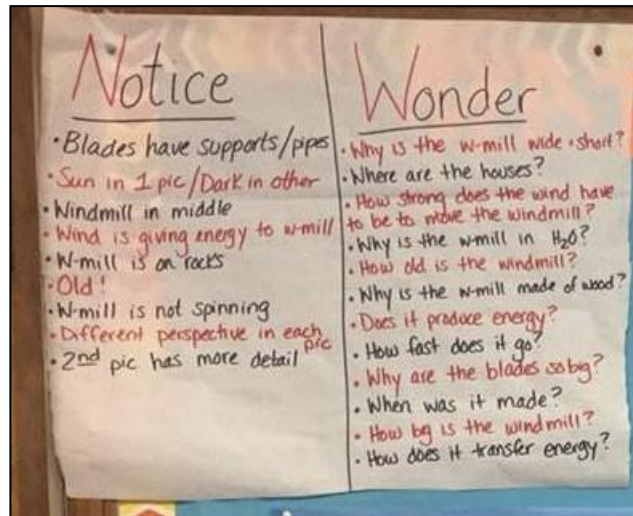 Notice
• Blades have supports/pipes
• Sun in 1 pic/Dark in other
• Windmill in middle
• Wind is giving energy to w-mill
• W-mill is on rocks
• Old!
• W-mill is not spinning
• Different perspective in each pic
• 2nd pic has more detail
Wonder
• Why is the w-mill wide + short?
• Where are the houses?
• How strong does the wind have
to be to move the windmill?
• Why is the w-mill in H₂O?
• How old is the windmill?
• Why is the w-mill made of wood?
• Does it produce energy?
• How fast does it go?
• Why are the blades so big?
• When was it made?
• How big is the windmill?
• How does it transfer energy?